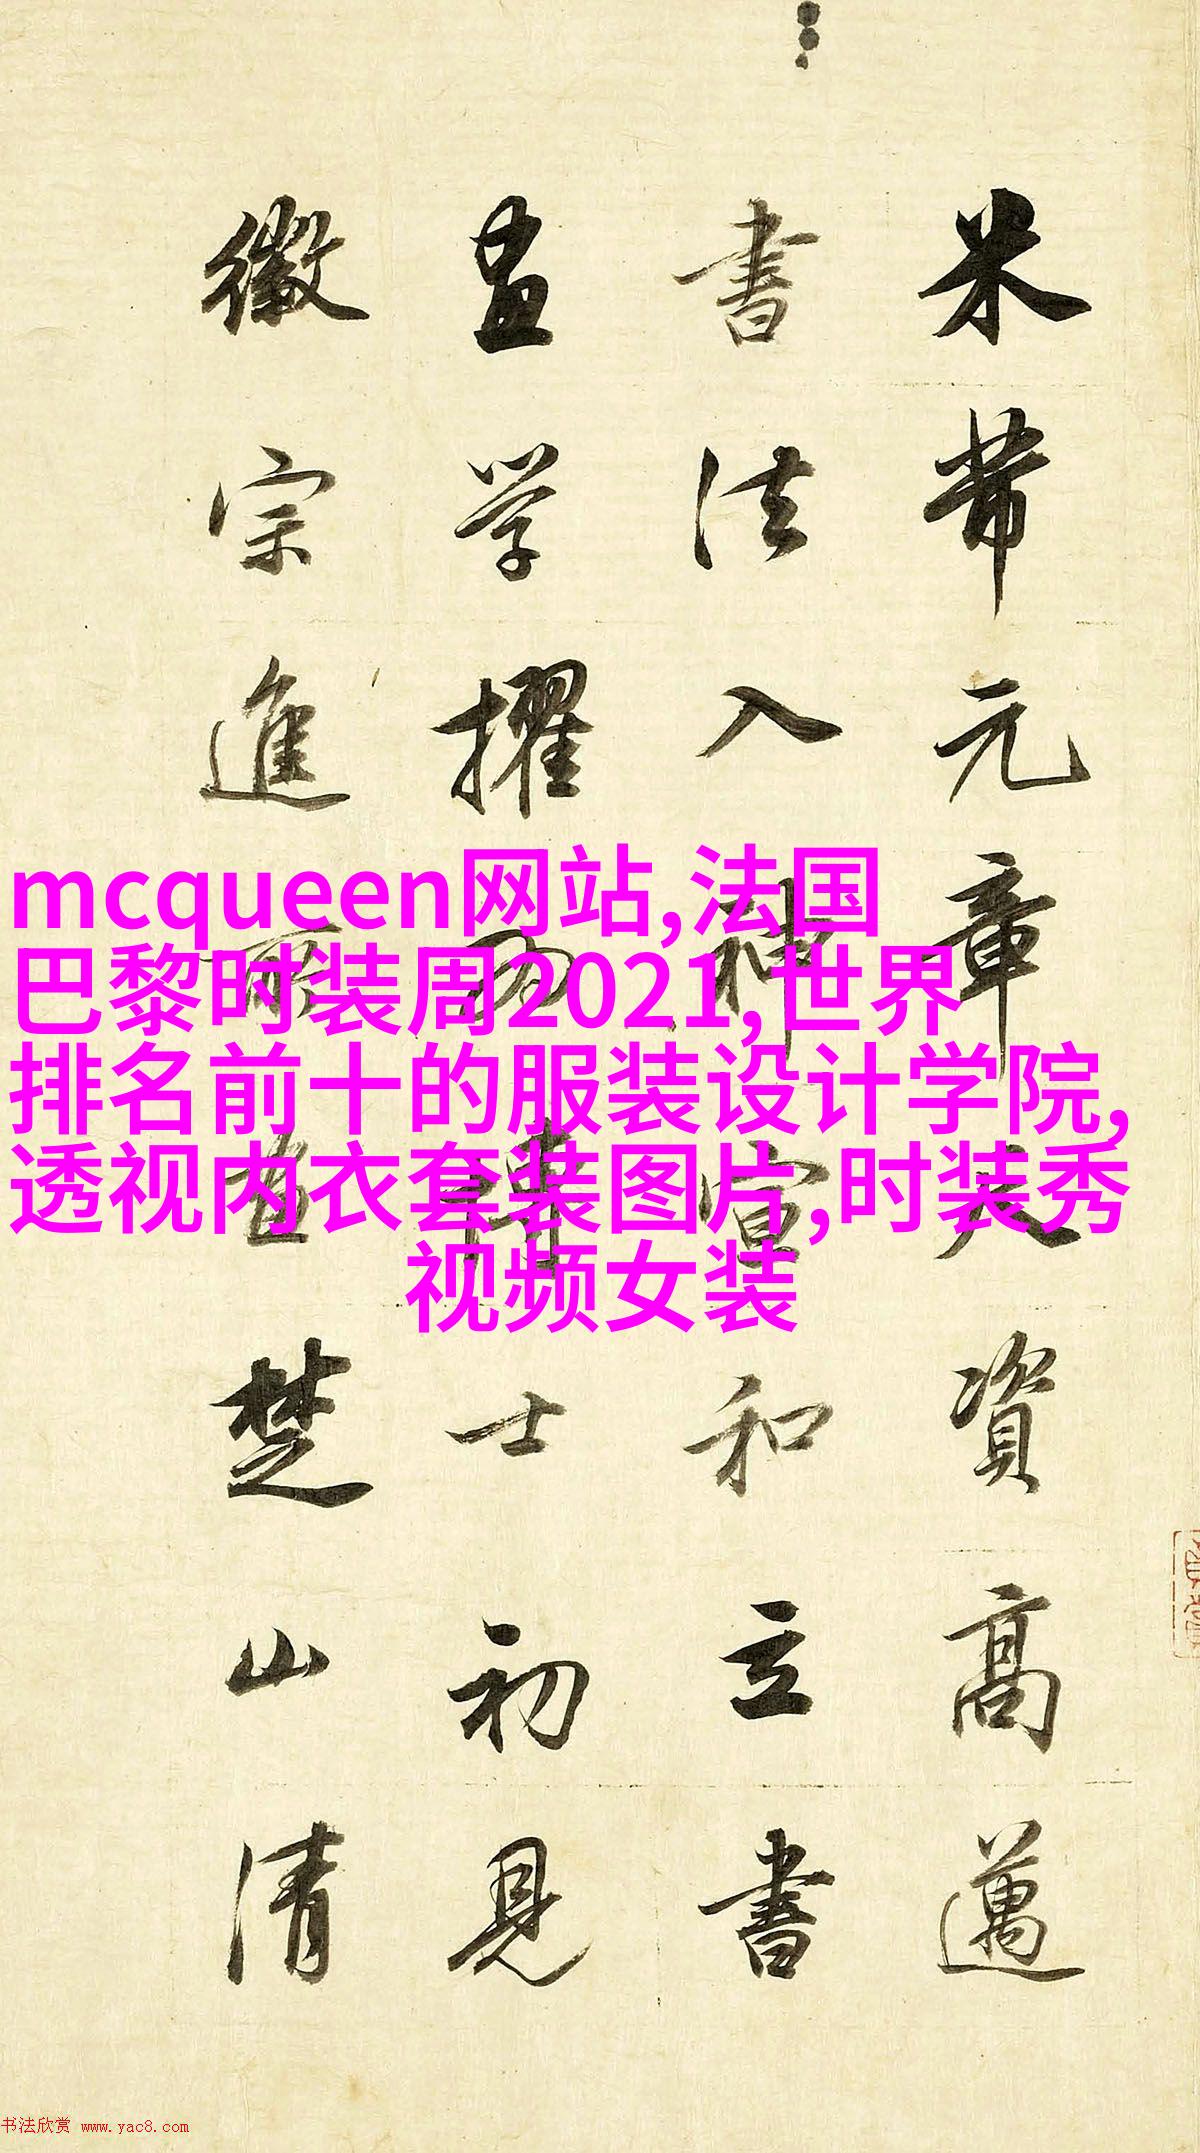 米芾元章天資高邁
書法入神宣和立書
畫学擢為博士初見
徽宗進所畫楚山清
mcqueen网站,法国
巴黎时装周2021,世界
排名前十的服装设计学院,
透视内衣套装图片,时装秀
视频女装
书法欣赏 www.yac8.com